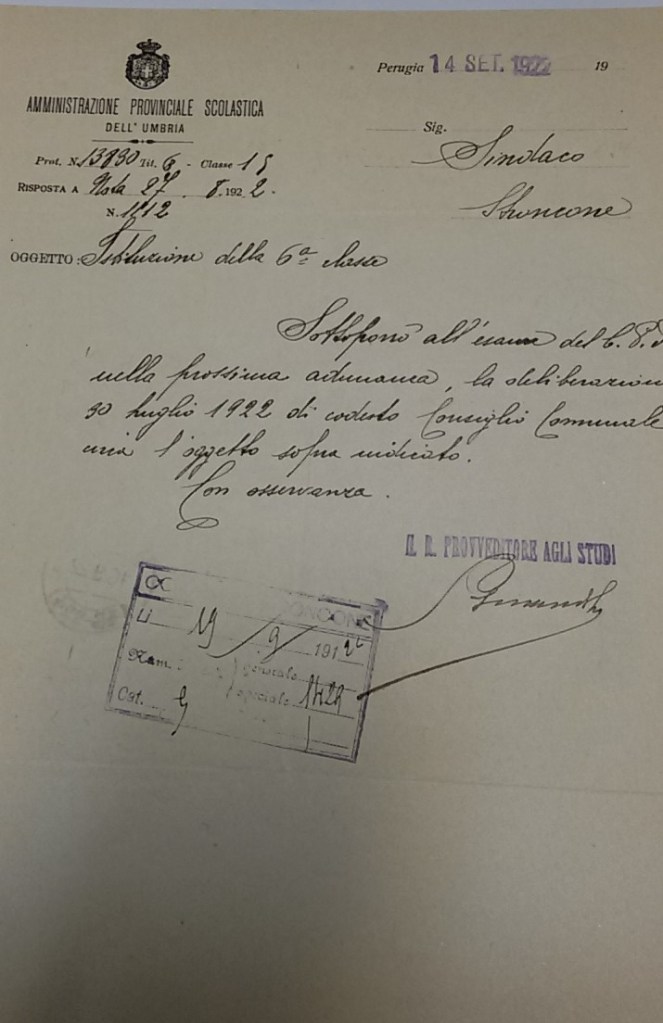 Perugia 14 SET. 1922 19
AMMINISTRAZIONE PROVINCIALE SCOLASTICA
DELL' UMBRIA
Sig.
Sindaco
Stroncone
Prot. N. 13830 Tit. 6 - Classe 15
RISPOSTA A Nota 27. 8. 1922.
N. 1212
OGGETTO: Istituzione della 6ª classe
Sottoporrò all'esame del C. P. S
nella prossima adunanza, la deliberazion
30 luglio 1922 di codesto Consiglio Comunale
l'oggetto sopra indicato.
Con osservanza.
IL R. PROVVEDITORE AGLI STUDI
Li 19 9 1912
Num. generale
speciale
Cat. 9